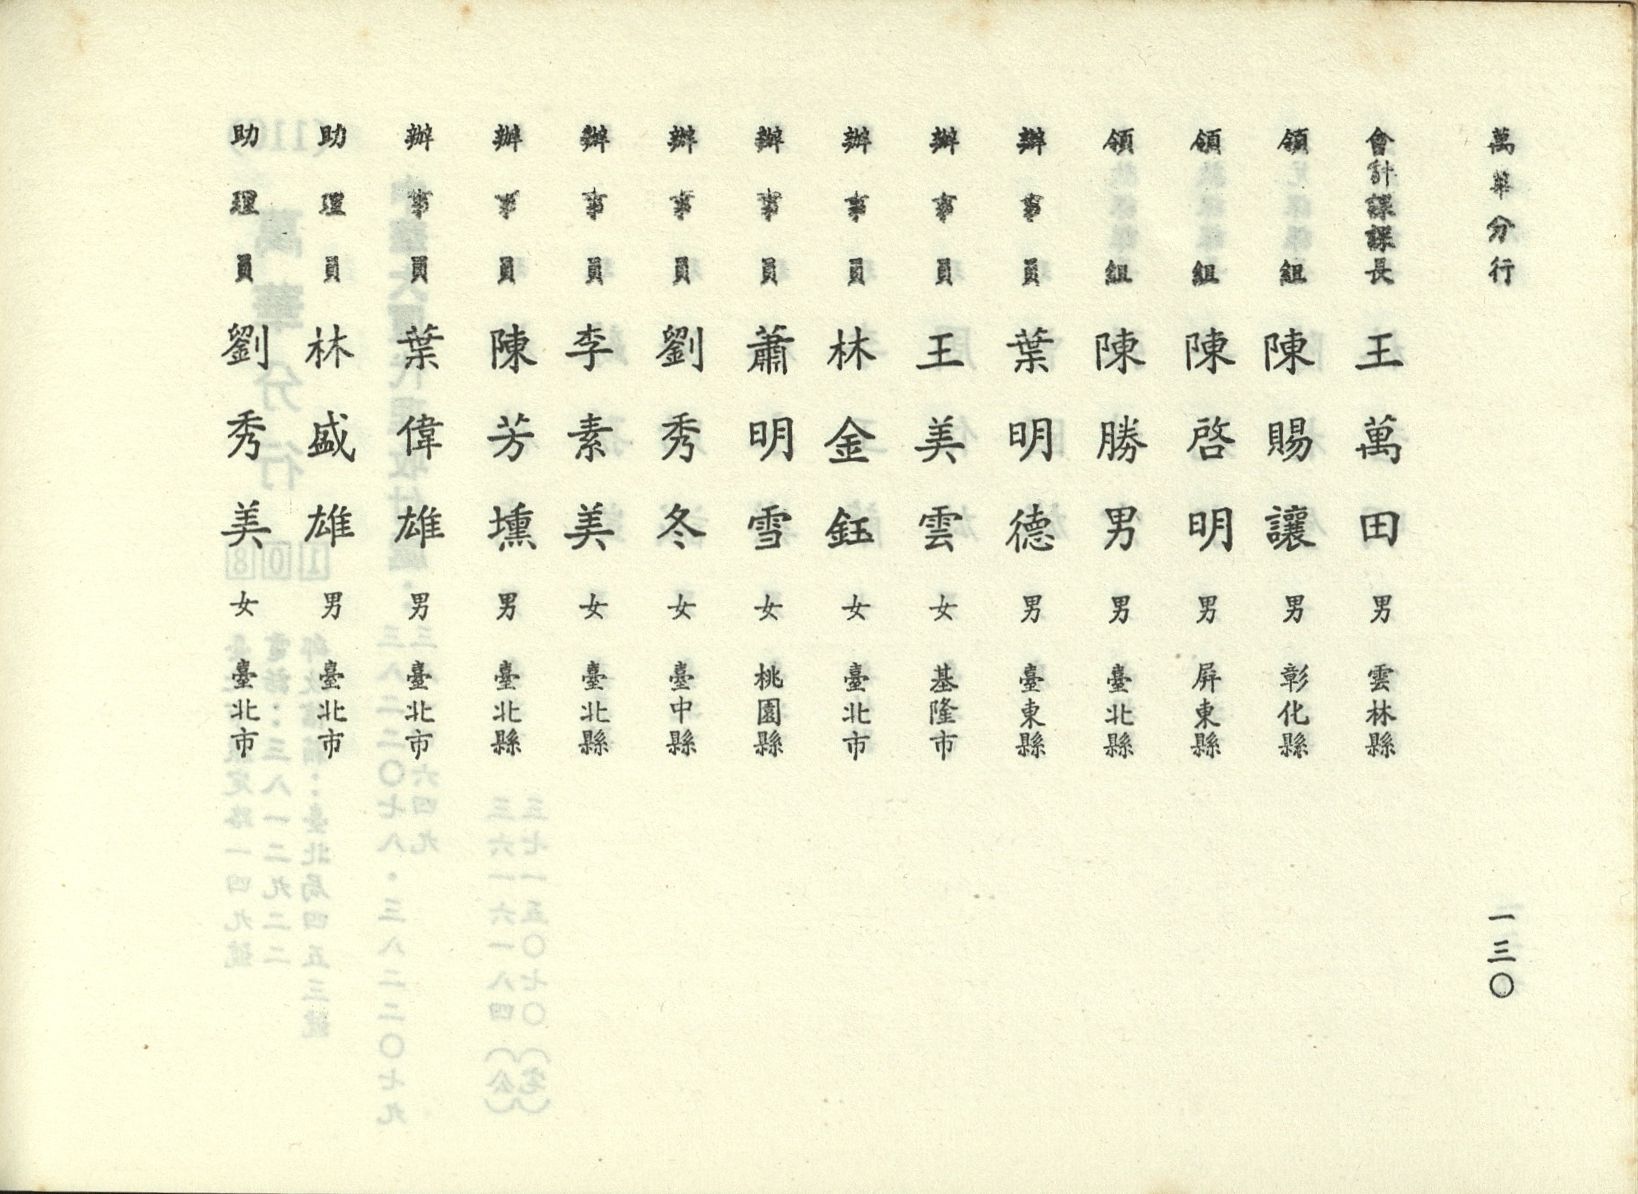 萬華分行
一三〇
會計課課長 王萬田 男 雲林縣
領組 陳賜讓 男 彰化縣
領組 陳啓明 男 屏東縣
領組 陳勝男 男 臺北縣
辦事員 葉明德 男 臺東縣
辦事員 王美雲 女 基隆市
辦事員 林金鈺 女 臺北市
辦事員 蕭明雪 女 桃園縣
辦事員 劉秀冬 女 臺中縣
辦事員 李素美 女 臺北縣
辦事員 陳芳壎 男 臺北縣
辦事員 葉偉雄 男 臺北市
助理員 林盛雄 男 臺北市
助理員 劉秀美 女 臺北市